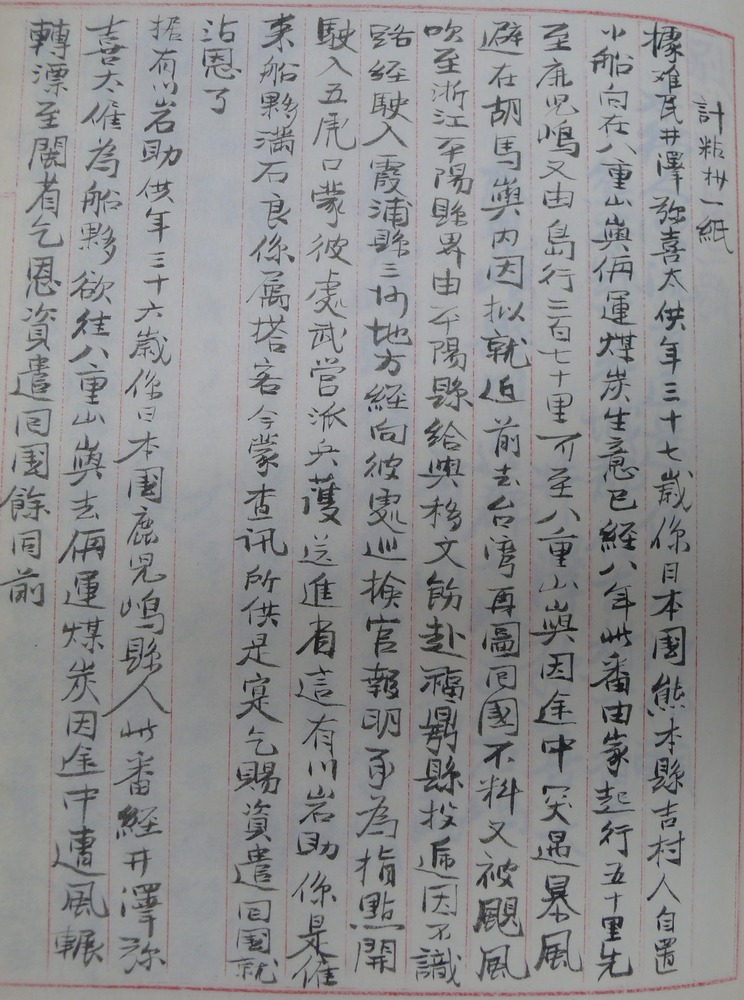 計粘抄一紙
據难民井澤弥喜太供年三十七歲係日本國熊本縣吉村人自置
小船向在八重山嶼俩運煤炭生意已經八年此番由家起行五十里先
至鹿児嶋又由島行三百七十里可至八重山嶼因途中突遇暴風
避在胡馬嶼内因拟就近前去台湾再圖回國不料又被颶風
吹至浙江平陽縣界由平陽縣給與移文飭赴福鼎縣投遞因不識
路經駛入霞浦縣三沙地方經向彼處巡檢官報明承為指點開
駛入五虎口蒙彼處武营派兵護送進省這有川岩助係是僱
来船夥满石良係属搭客今蒙查讯所供是寔乞賜資遣回國就
沾恩了
据有川岩助供年三十六歲係日本國鹿児嶋縣人此番經井澤弥
喜太僱為船夥欲往八重山嶼去俩運煤炭因途中遭風輾
轉漂至閩省乞恩資遣回國餘同前